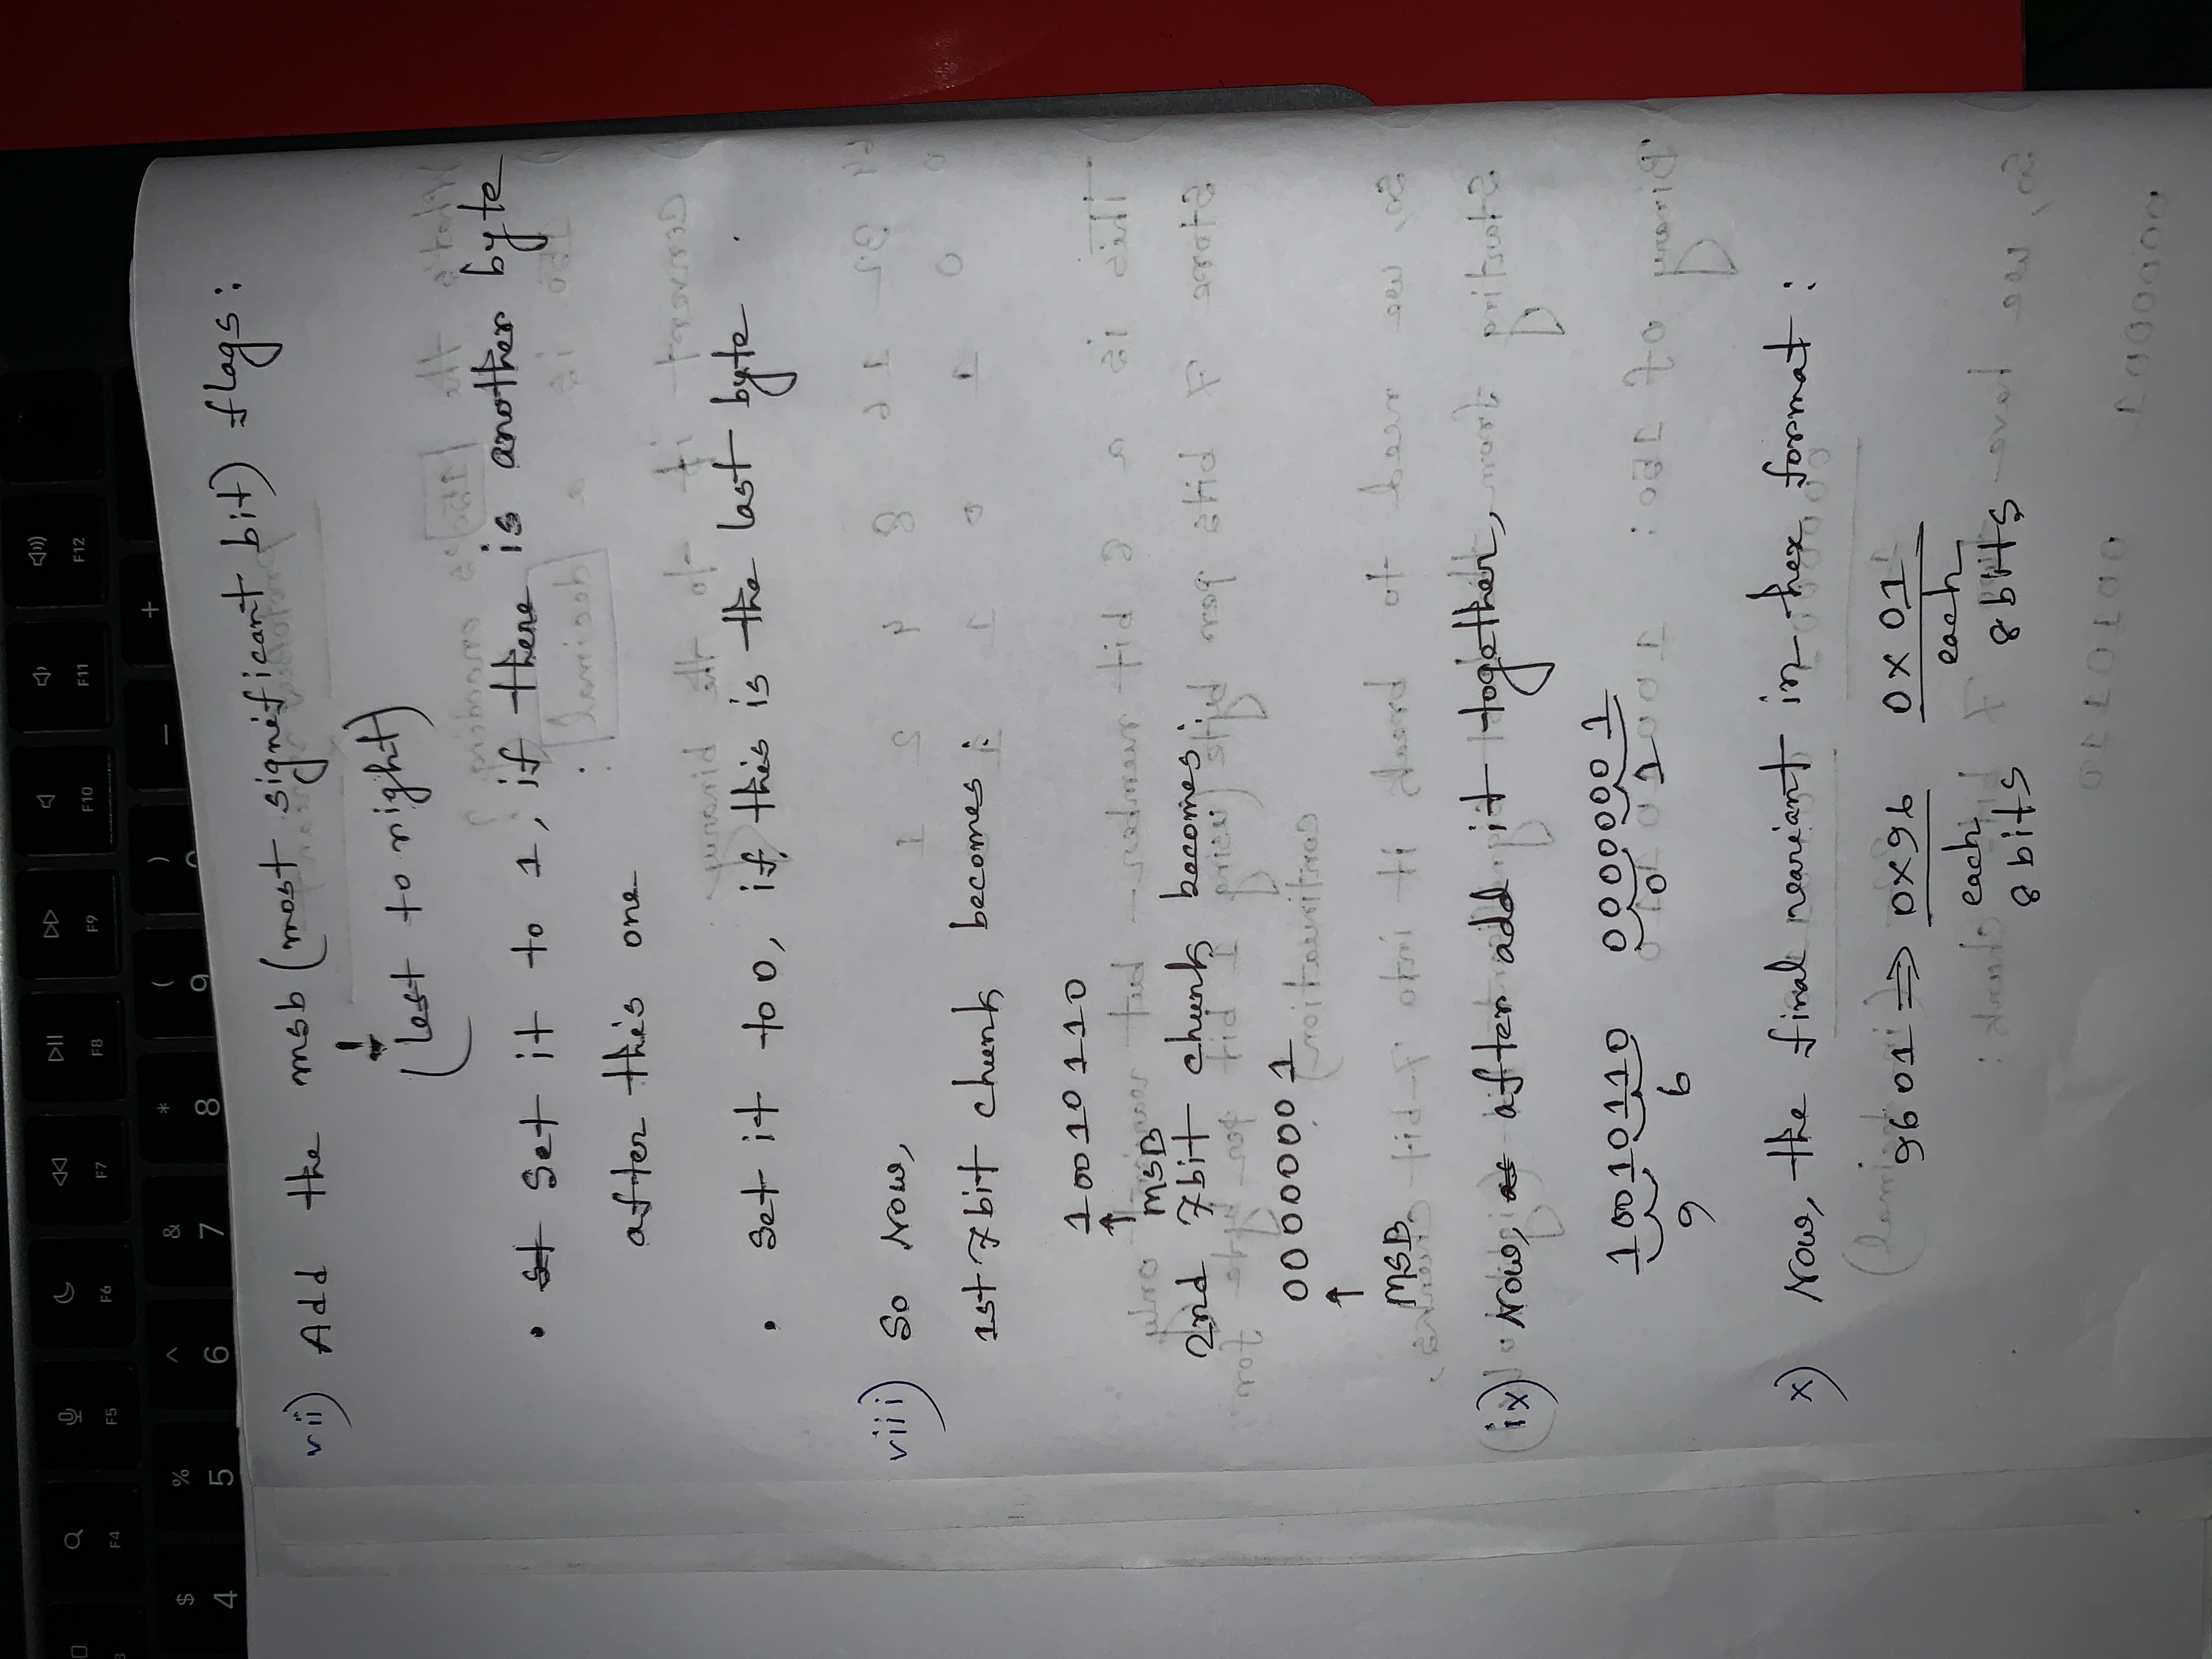 F4 F5 F6 F7 F8 F9 F10 F11 F12
$ % ^ & * ( ) — +
4 5 6 7 8 9
vii) Add the msb (most significant bit) flags:
(lest to right)
• st Set it to 1, if there is another byte
after this one
• set it to 0, if this is the last byte
viii) So Now,
1st 7bit chunk becomes:
10010110
MSB
2nd 7bit chunk becomes:
00000001
MSB
ix) Now, as after add it together,
10010110 00000001
9 6 0 1
x) Now, the final variant in hex format:
9601 ⇒ 0x96 0x01
each each
8 bits 8 bits